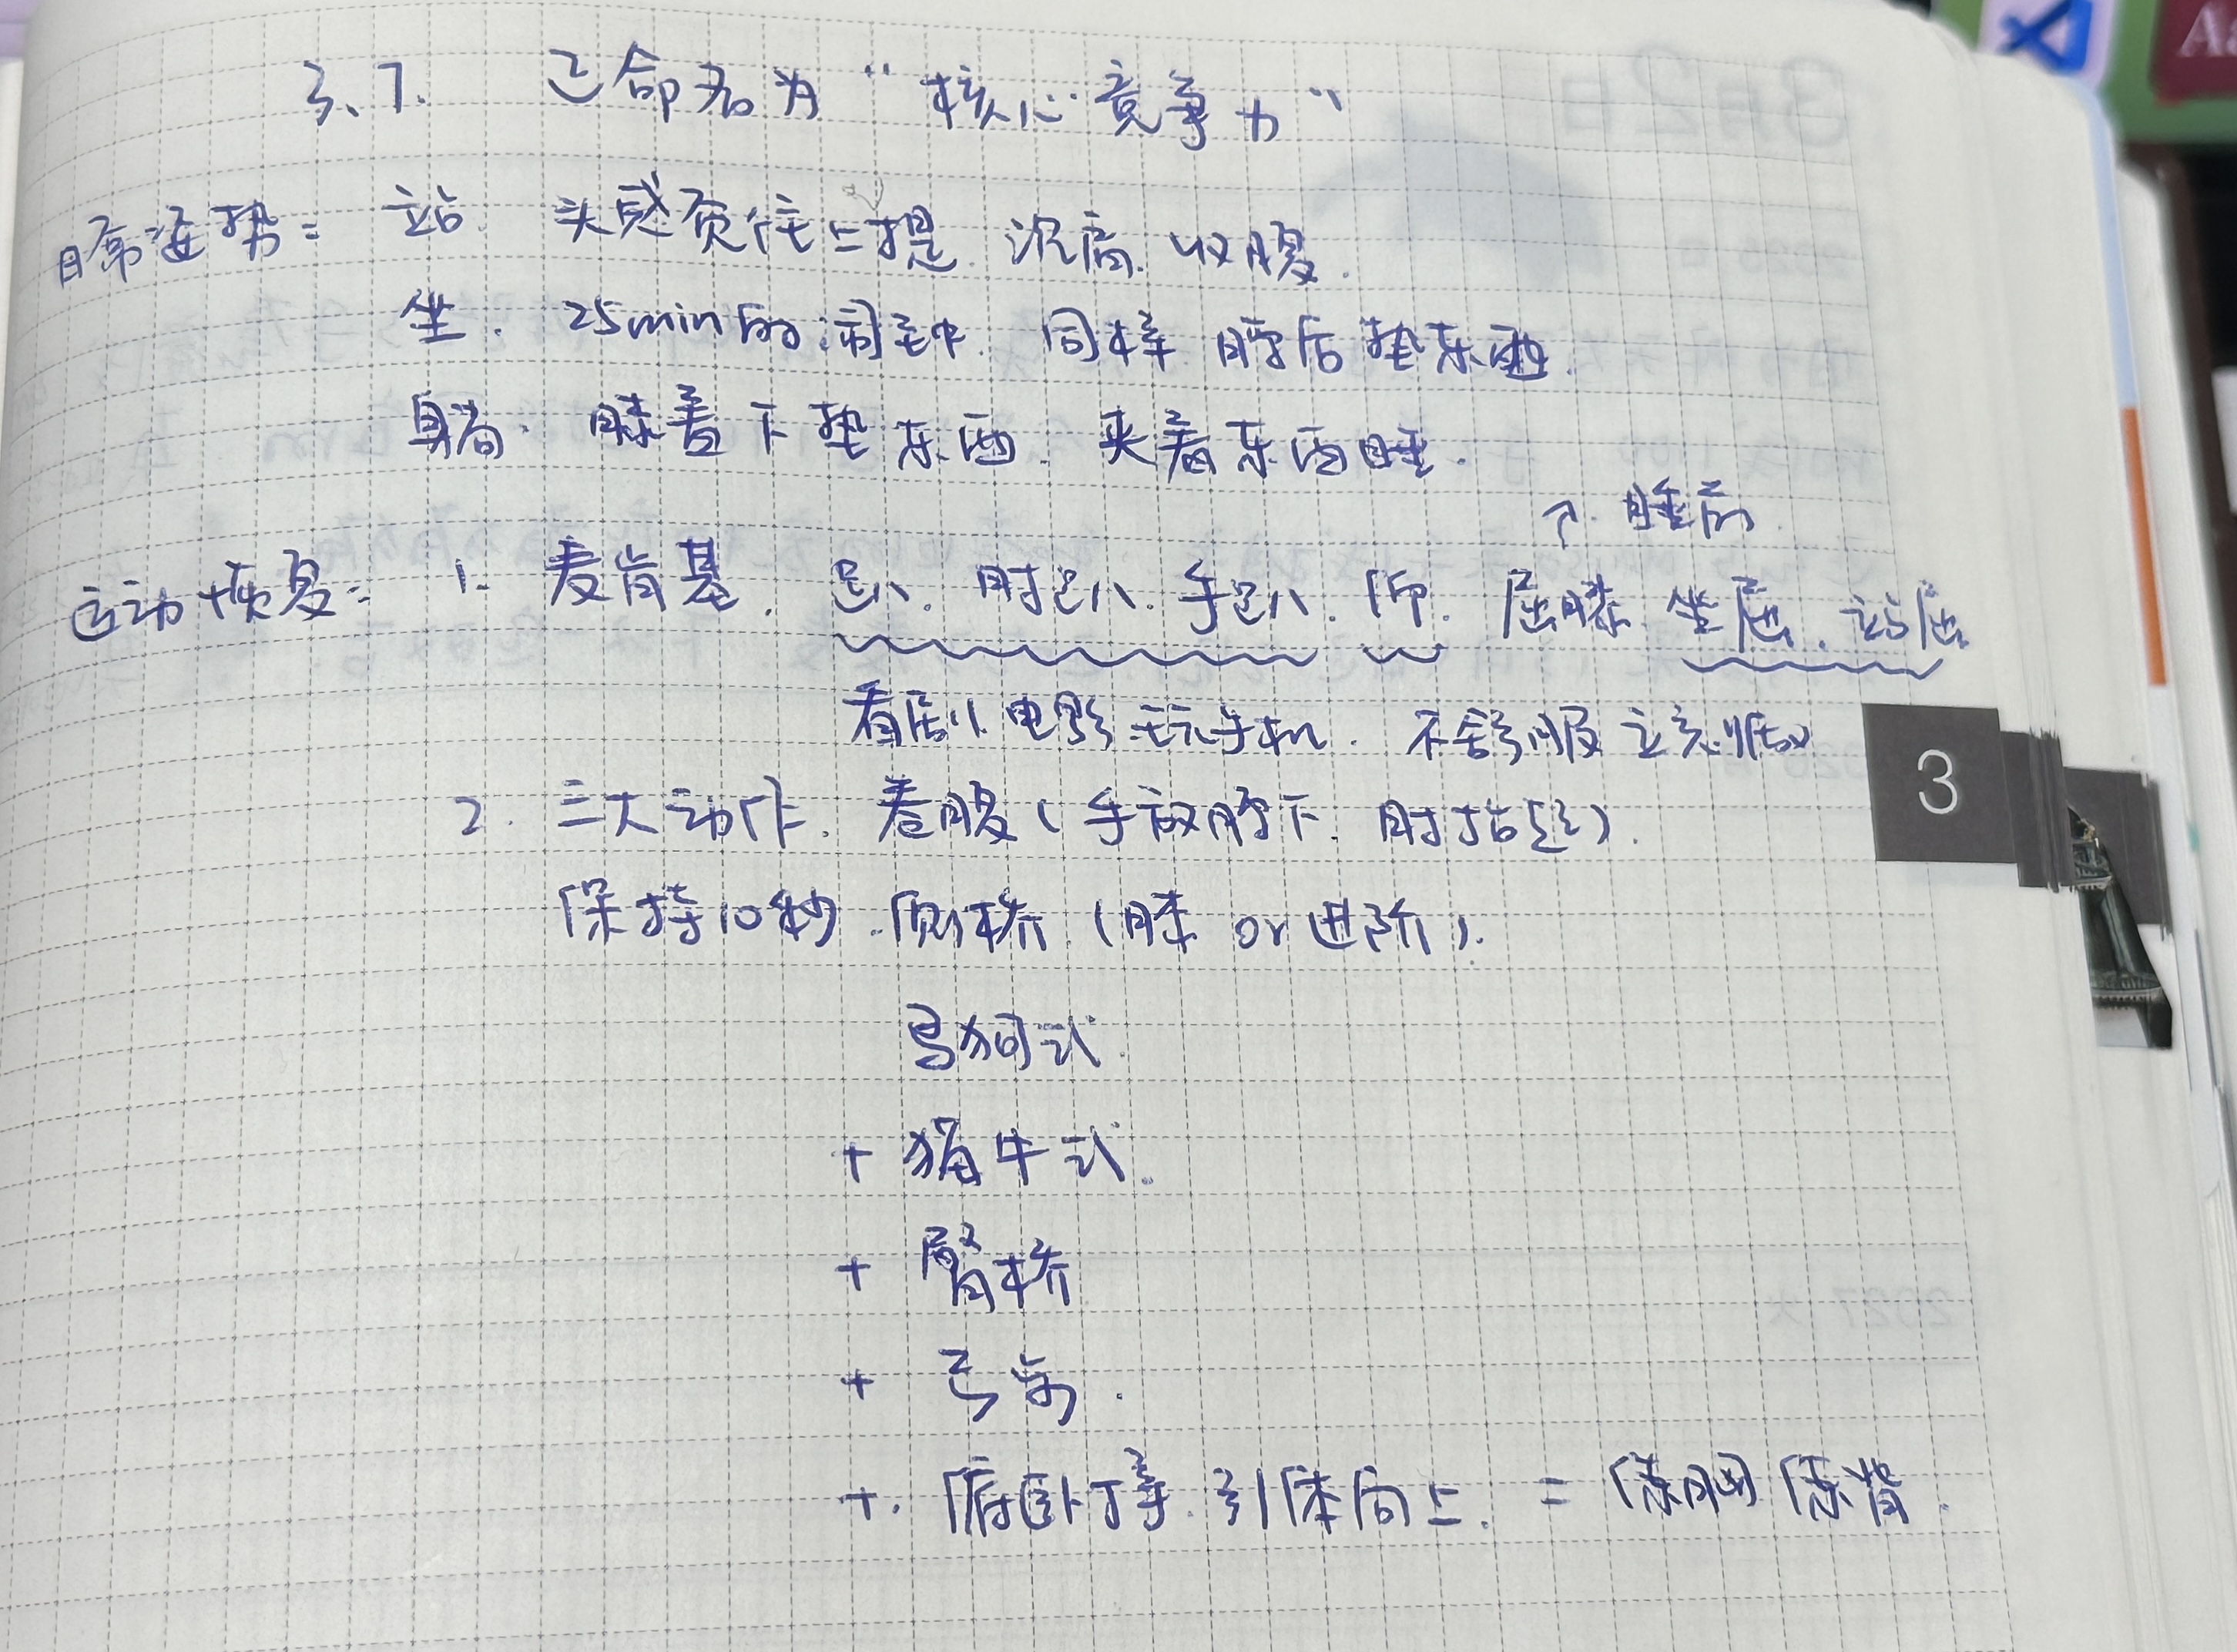 3.7. 已命名为“核心竞争力”
日常姿势: 站 头感觉往上提 沉肩 收腹.
坐. 25min的闹钟 同样 腰后垫东西.
躺. 膝盖下垫东西. 夹着东西睡.
↗. 睡前
运动恢复: 1. 麦肯基. 趴. 肘趴. 手趴. 仰. 屈膝. 坐屈. 站屈
看剧. 电影 玩手机. 不舒服立刻做
2. 三大动作. 卷腹(手放腰下. 肘抬起).
保持10秒. 侧桥(膝 or 进阶).
鸟狗式.
+ 猫牛式.
+ 臀桥
+ 弓步.
+. 俯卧撑. 引体向上. =
3